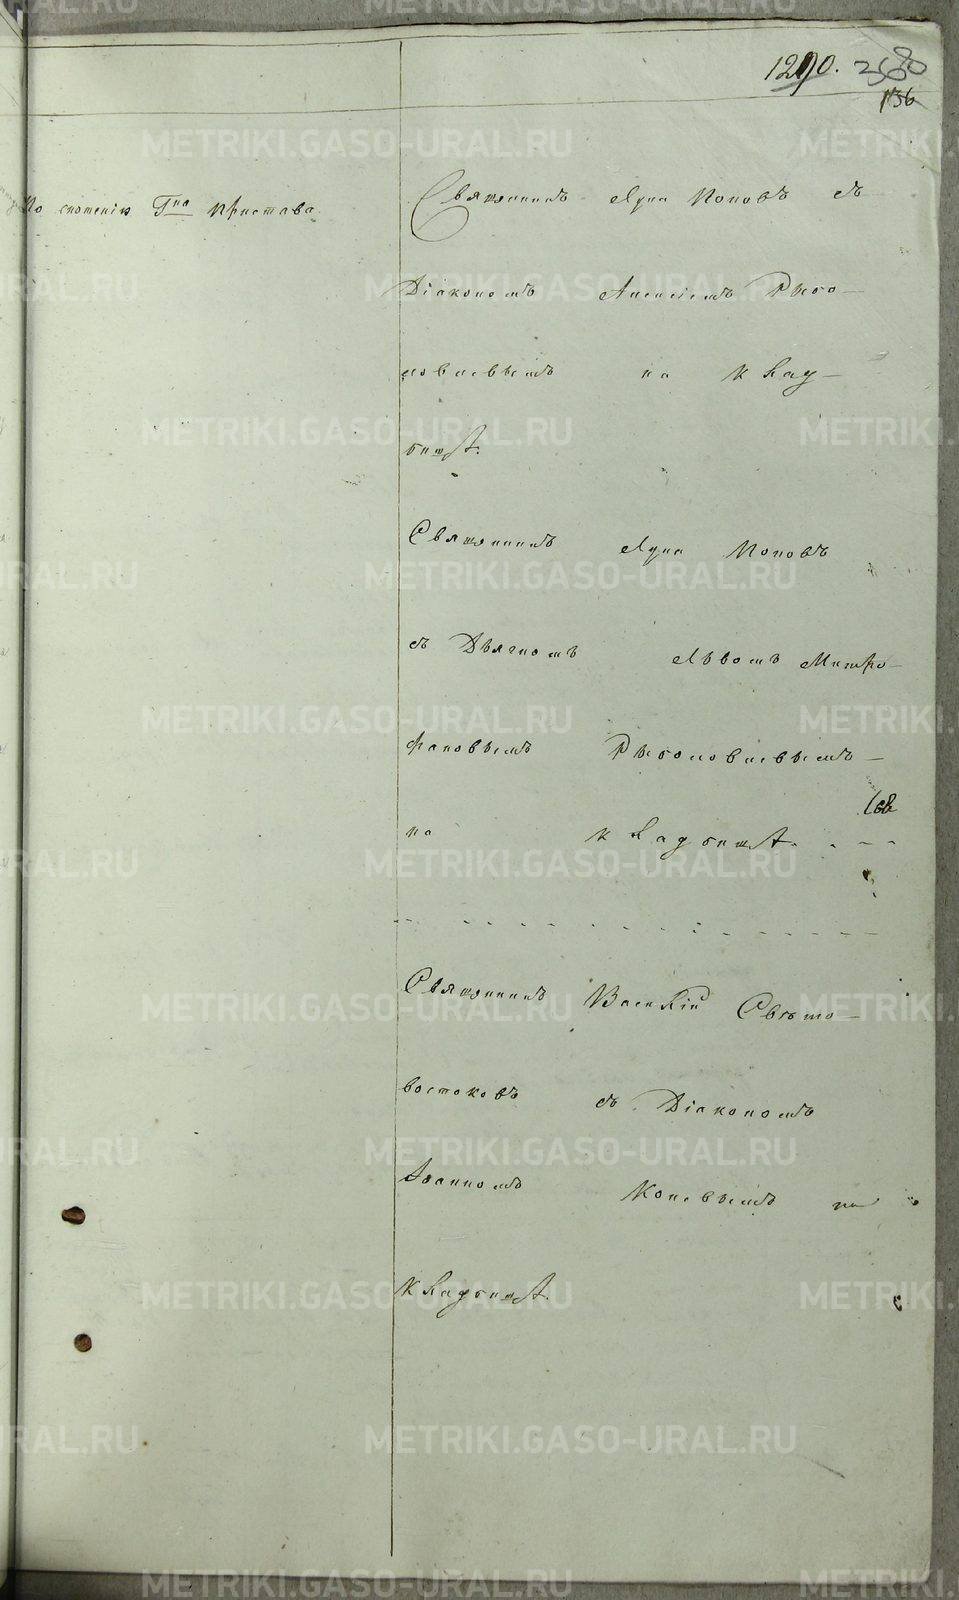 1290. 360
136
По сношенію Гна Пристава.
Священникъ Лука Поповъ съ
Діакономъ Алексіемъ Рыбо-
ловлевымъ на клад-
бищѣ.
Священникъ Лука Поповъ
съ Дьячкомъ Львомъ Митро-
фановымъ Рыболовлевымъ
на кладбищѣ.
Священникъ Василій Свѣто-
востоковъ съ Діакономъ
Іоанномъ Коневымъ на
кладбищѣ.
METRIKI.GASO-URAL.RU